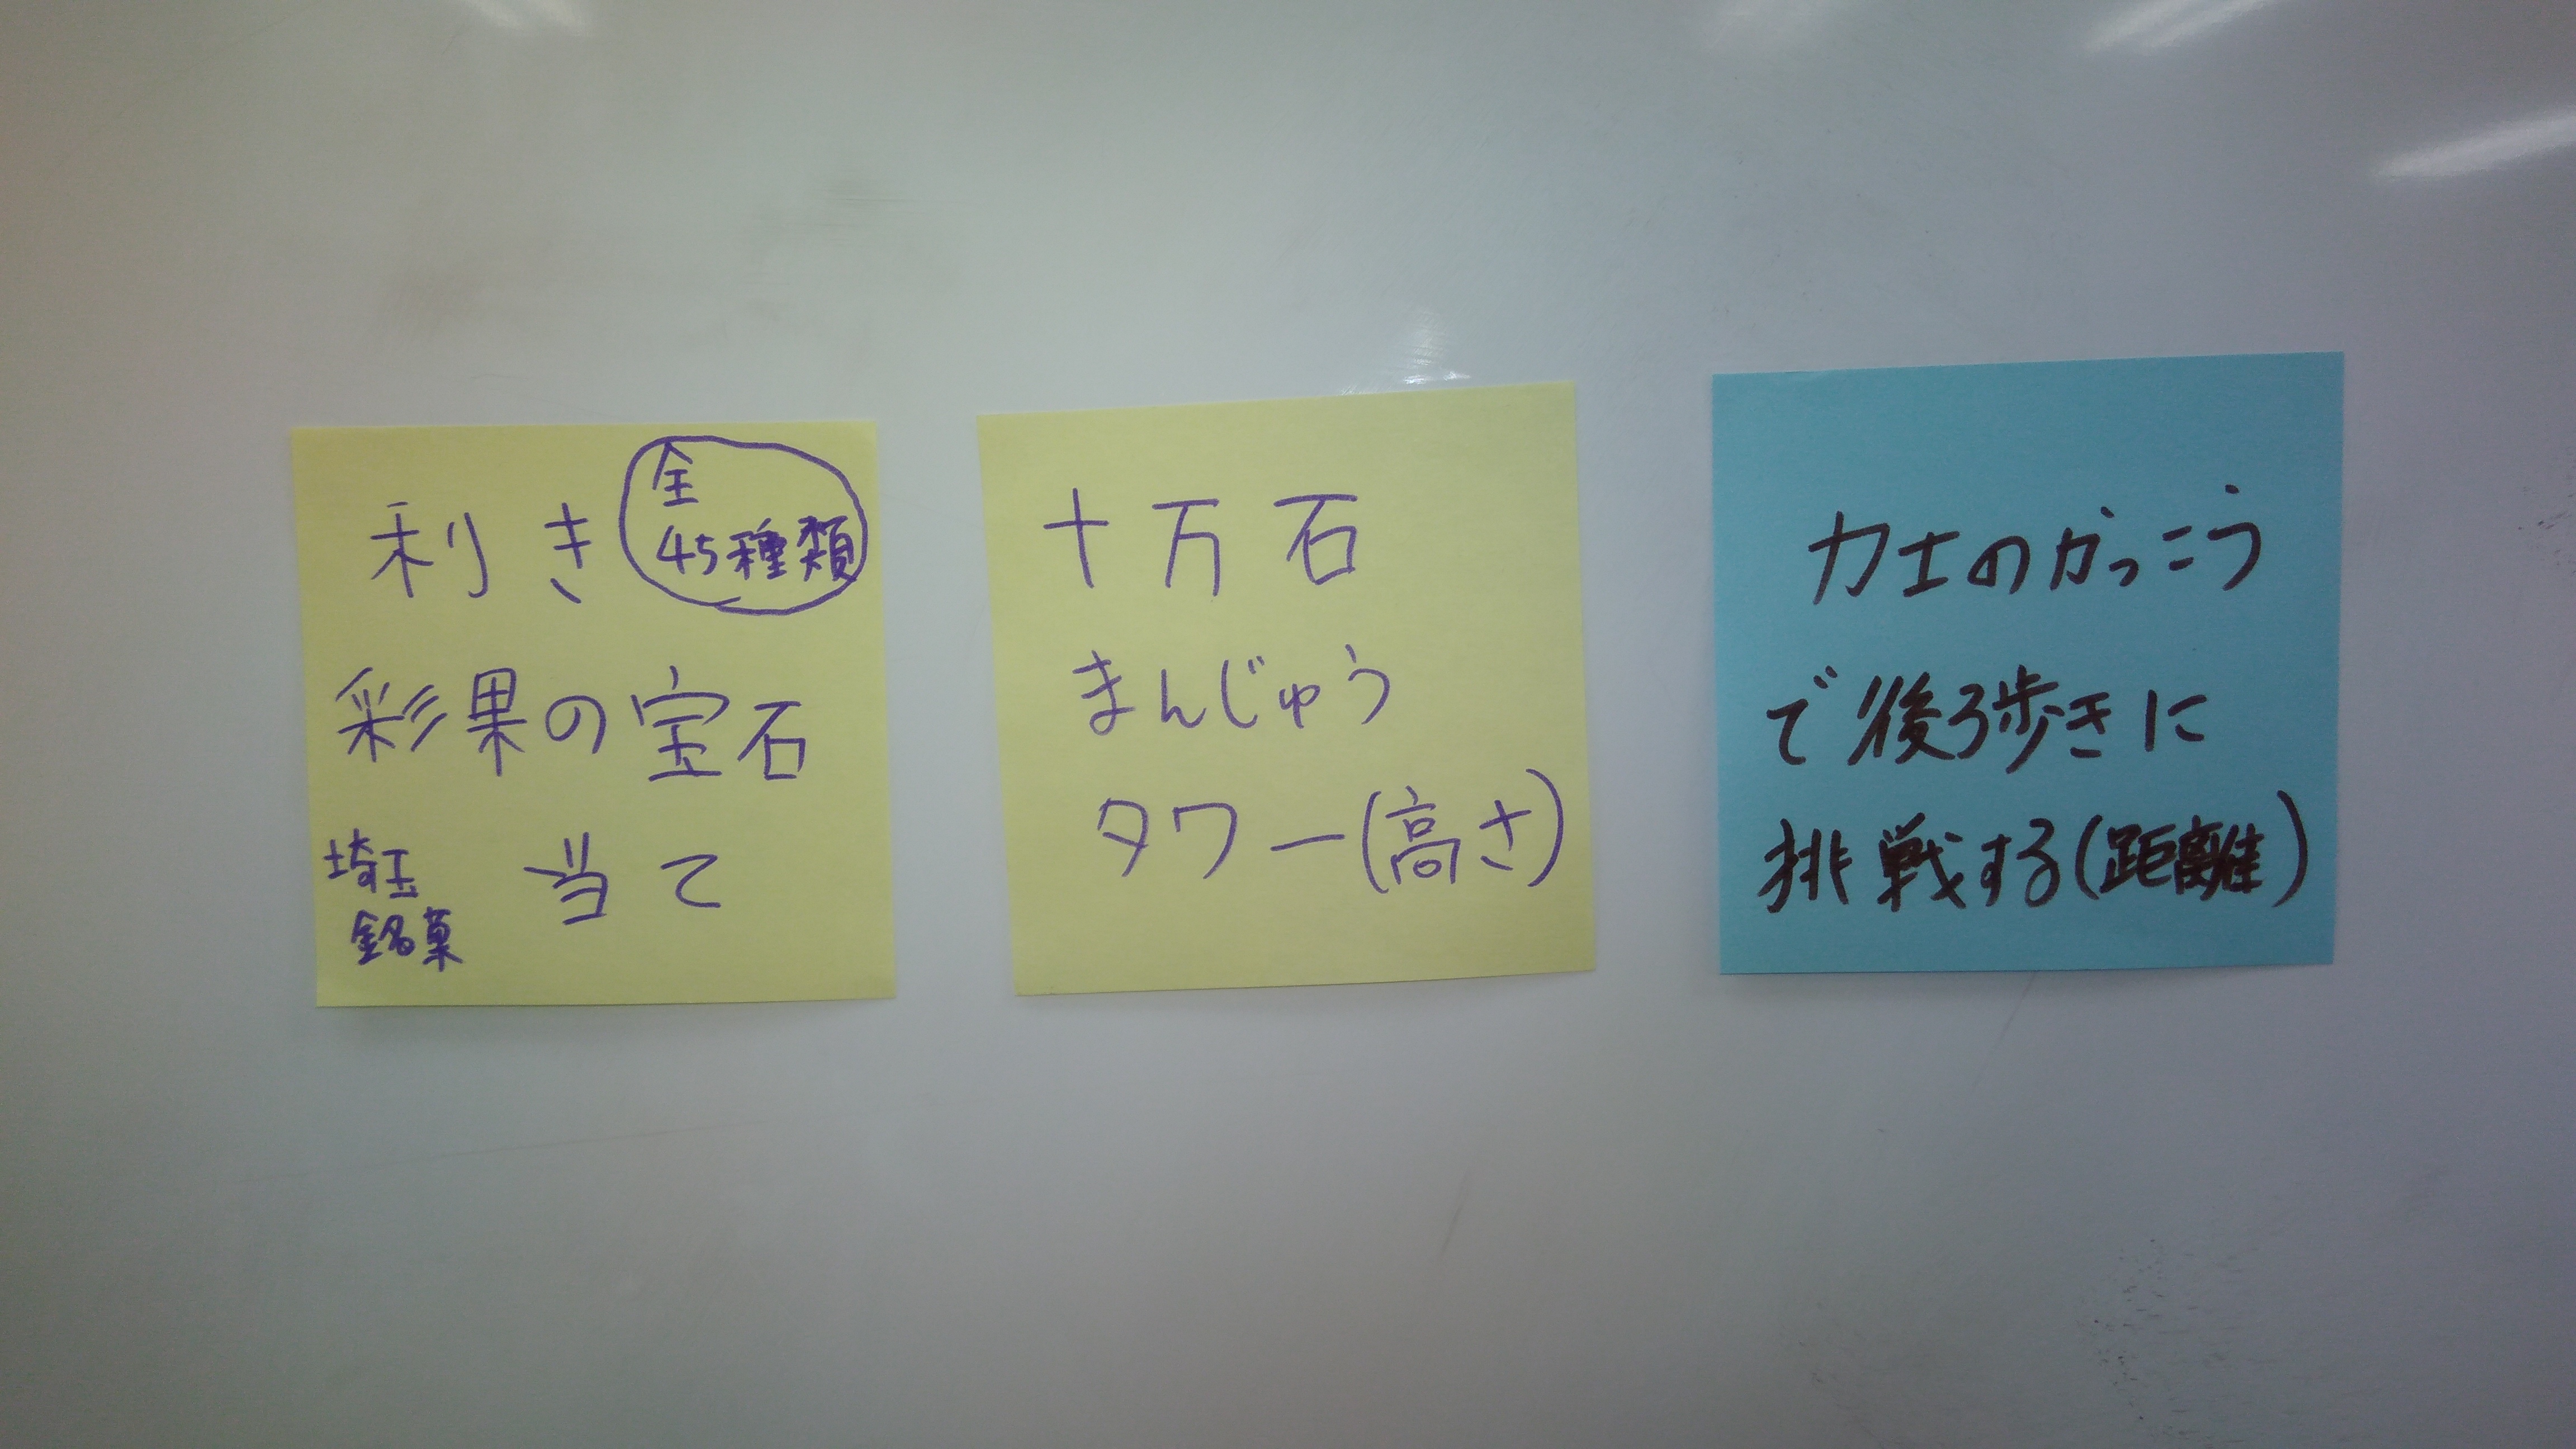 利き
全
45種類
彩果の宝石
当て
埼玉
銘菓
十万石
まんじゅう
タワー(高さ)
力士のかっこう
で後ろ歩きに
挑戦する(距離)